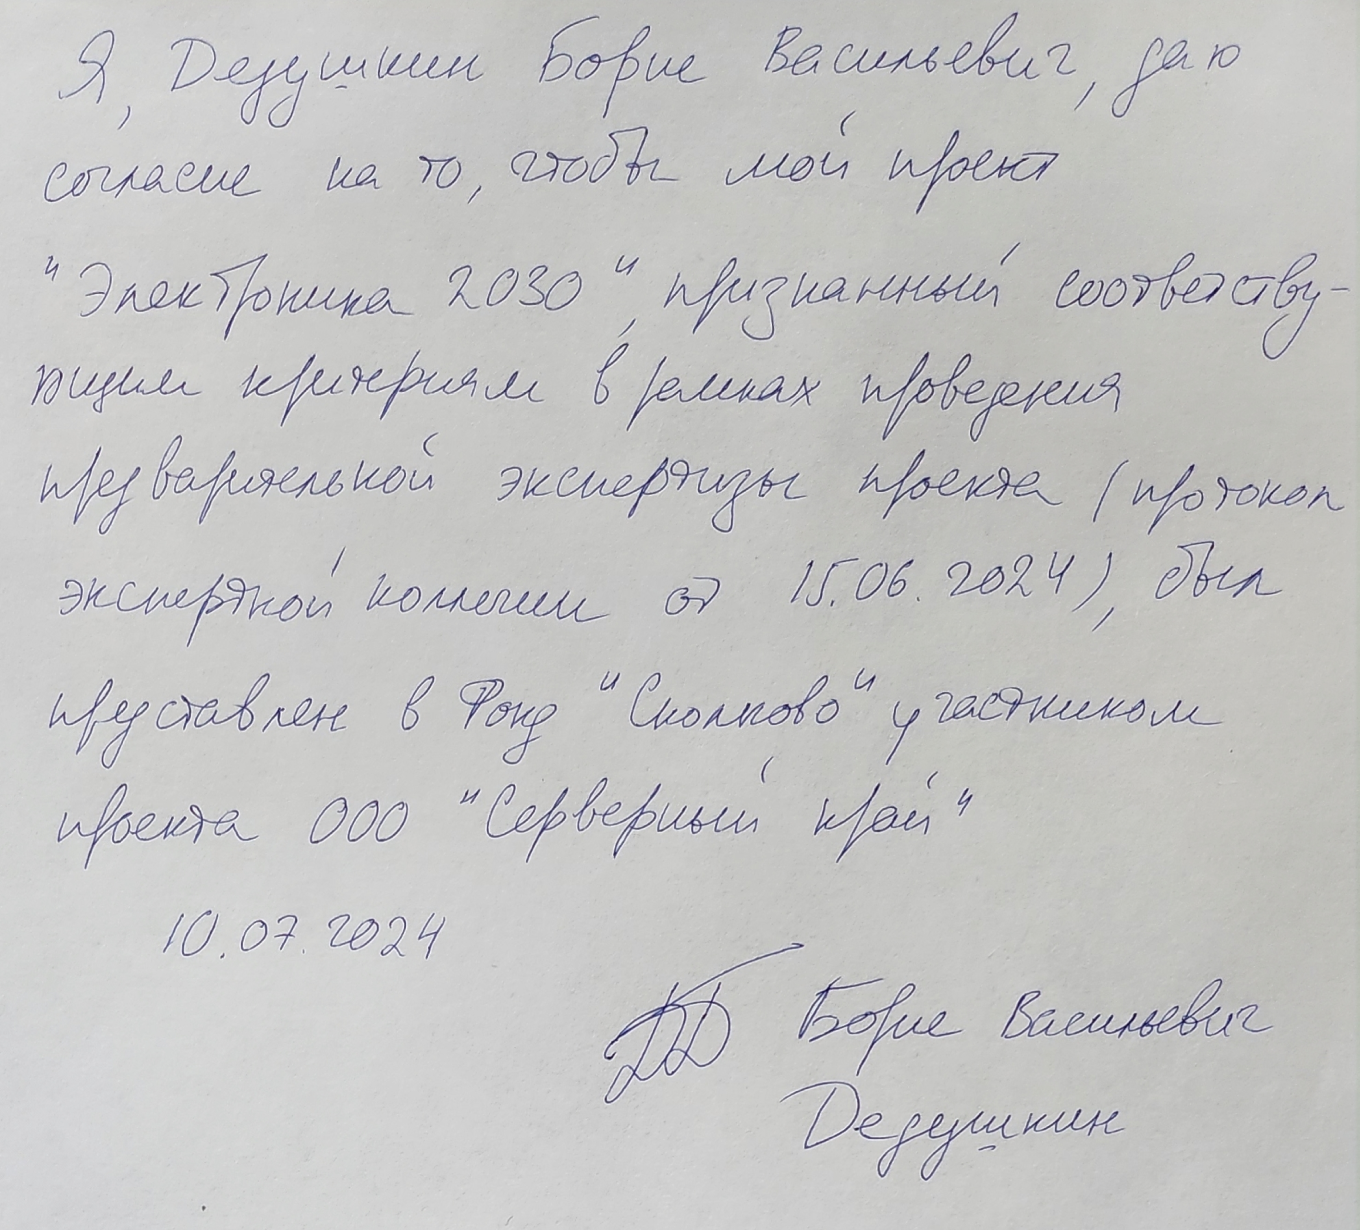 Я, Дедушкин Борис Васильевич, даю
согласие на то, чтобы мой проект
"Электроника 2030", признанный соответству-
ющим критериям в рамках проведения
предварительной экспертизы проекта (протокол
экспертной коллегии от 15.06.2024), был
представлен в Фонд "Сколково" участником
проекта ООО "Серверный край"
10.07.2024
Борис Васильевич
Дедушкин